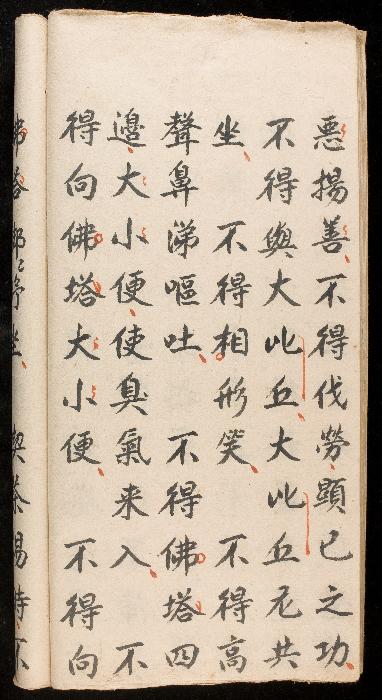 悪揚善不得伐勞顯已之功
不得與大比丘大比丘尼共
坐 不得相形笑 不得高
聲鼻涕嘔吐 不得佛塔四
邊大小便使臭氣来入 不
得向佛塔大小便 不得向